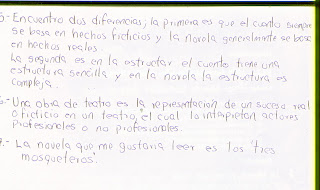 5-Encuentro dos diferencias, la primera es que el cuento siempre
se basa en hechos ficticios y la novela generalmente se basa
en hechos reales
La segunda es en la estructar el cuento tiene una
estructura sencilla y en la novela la estructura es
compleja.
6.- Una obra de teatro es la representación de un suceso real
o ficticio en un teatro, el cual lo interpretan actores
profesionales o no profesionales.
7.- La novela que me gustaria leer es los "tres
mosqueteros".